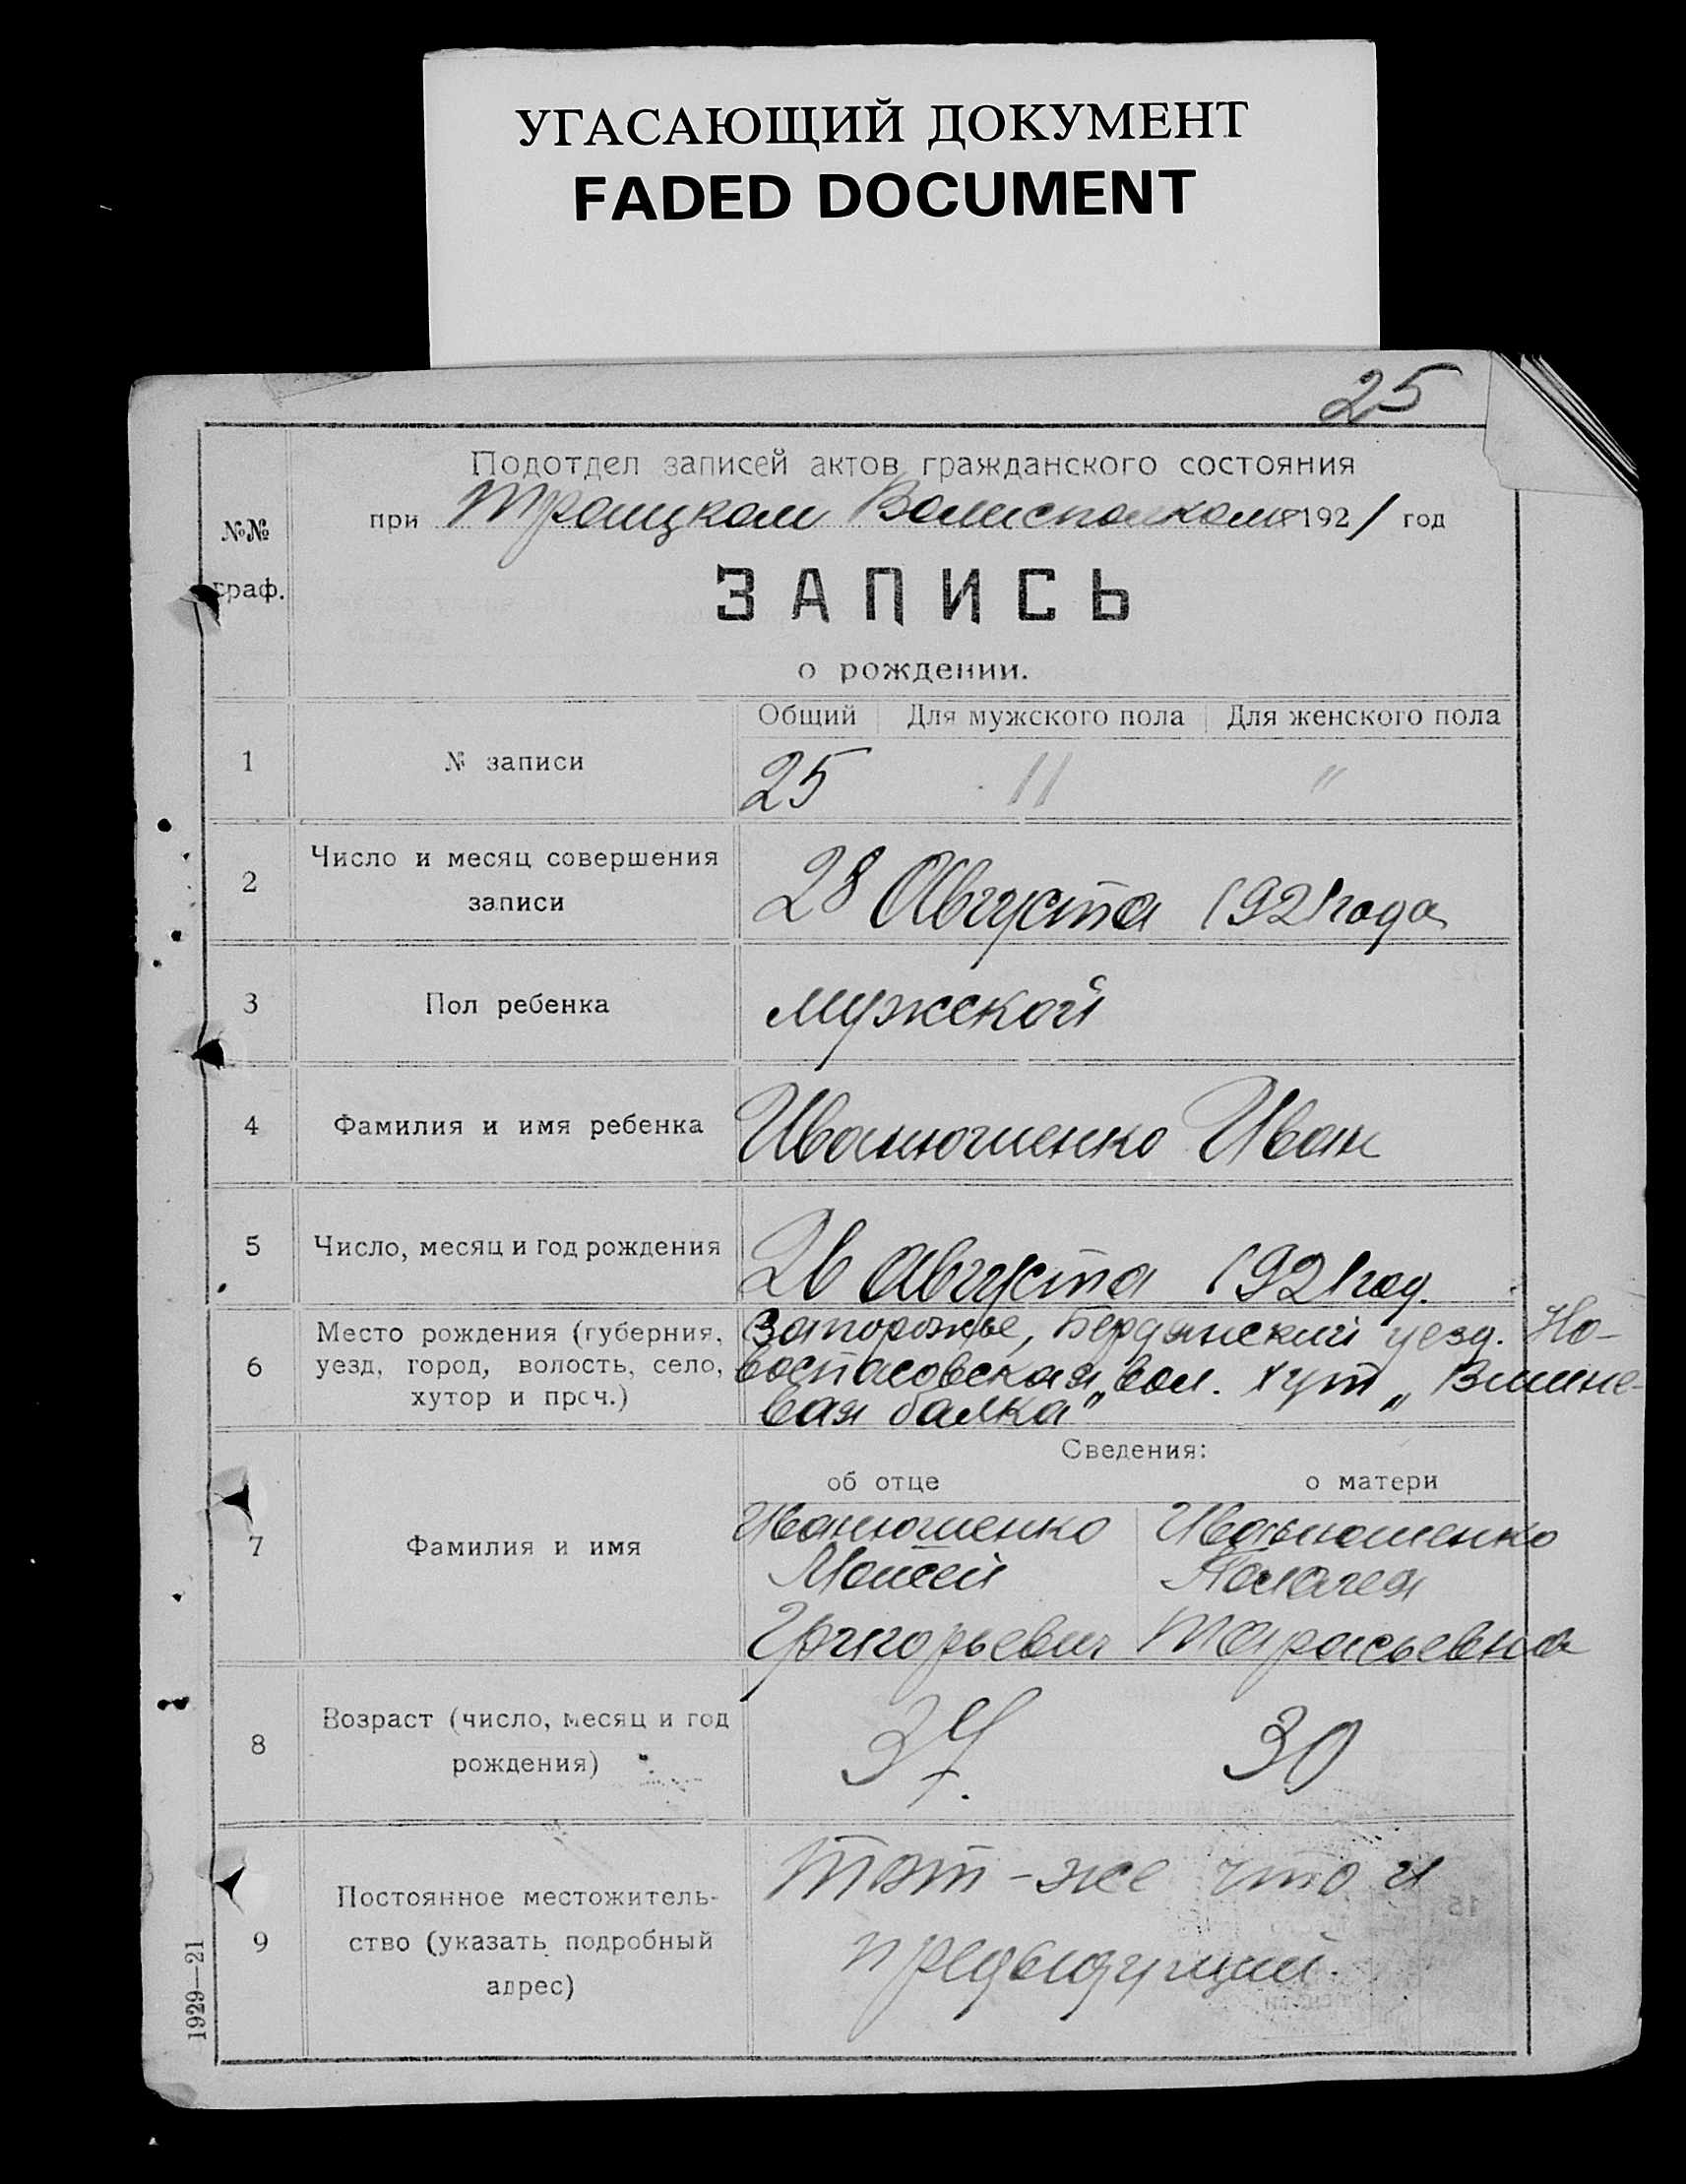 УГАСАЮЩИЙ ДОКУМЕНТ
FADED DOCUMENT
25
Подотдел записей актов гражданского состояния
№№ граф.
при Троицком Волисполкоме 1921 год
ЗАПИСЬ
о рождении.
Общий Для мужского пола Для женского пола
1 № записи 25 11 "
2 Число и месяц совершения записи 28 Августа 1921 года
3 Пол ребенка мужской
4 Фамилия и имя ребенка Иванюшенко Иван
5 Число, месяц и год рождения 26 Августа 1921 год.
6 Место рождения (губерния, уезд, город, волость, село, хутор и проч.)
Запорожье, Бердянский уезд. Но-
воспасовская вол. хут „Вишне-
вая балка"
Сведения:
об отце о матери
7 Фамилия и имя
Иванюшенко Иванюшенко
Моисей Палагея
Григорьевич Тарасьевна
8 Возраст (число, месяц и год рождения) 37. 30
9 Постоянное местожитель-
ство (указать подробный
адрес)
тот-же что и
предыдущий.
1929—21